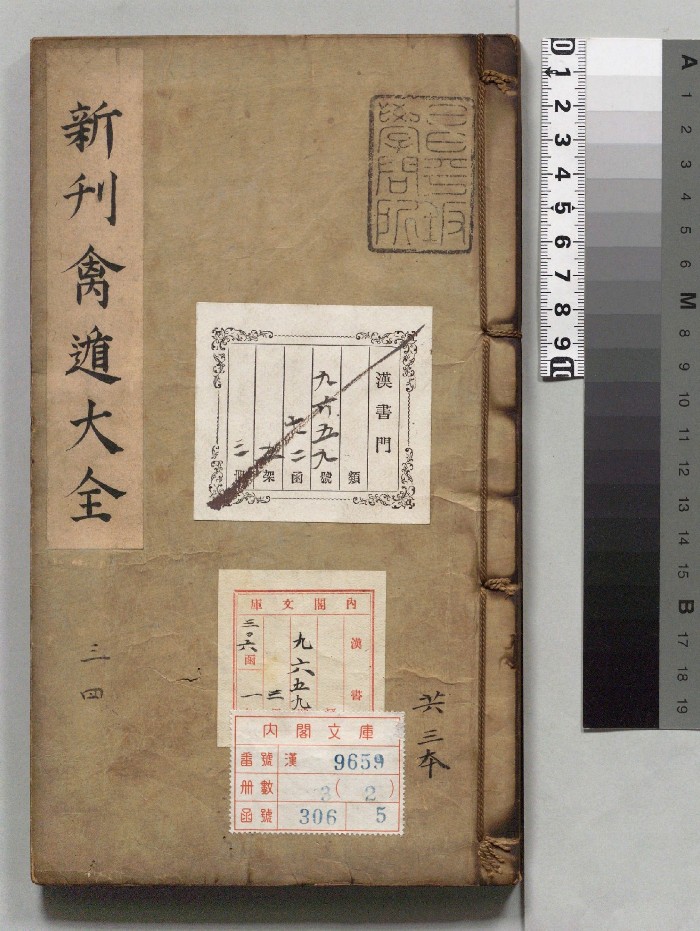 新刊禽遁大全
三四
昌平坂
學問所
漢書門
類
九六五九號
二函
架
三冊
內閣文庫
漢書
九六五九
三
三〇六函
一
共三本
內閣文庫
番號 漢 9659
冊數 3(2)
函號 306 5
0 1 2 3 4 5 6 7 8 9 10
A 1 2 3 4 5 6 M 8 9 10 11 12 13 14 15 B 17 18 19